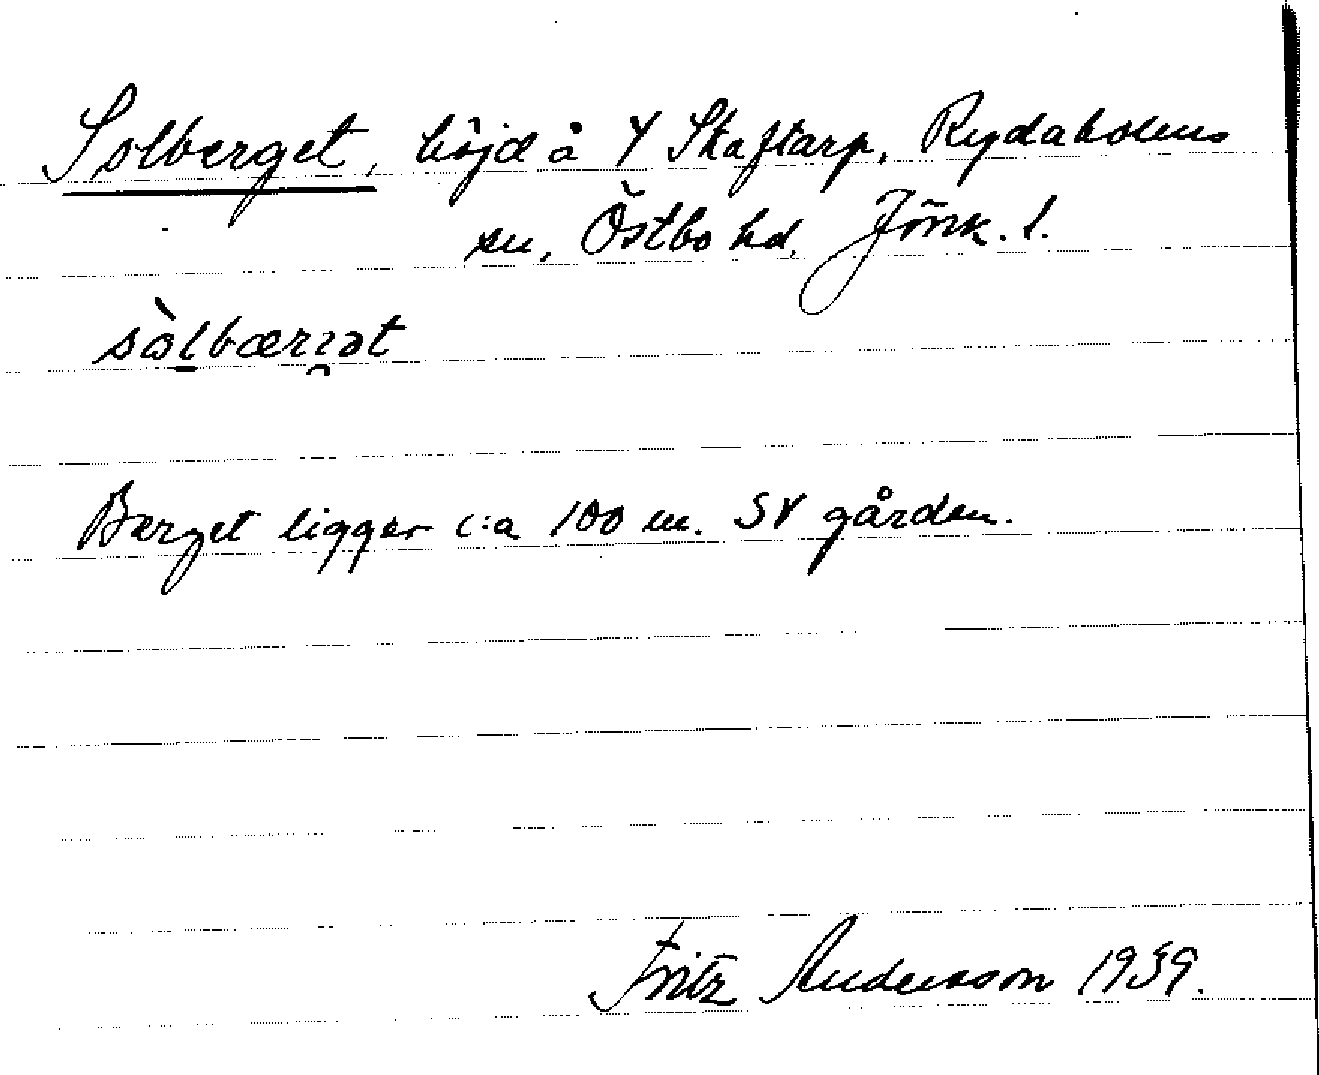 Solberget, höjd å Y Skaftarp, Rydaholms
sn, Östbo hd, Jönk. l.
Berget ligger c:a 100 m. SV gården.
Fritz Andersson 1939.